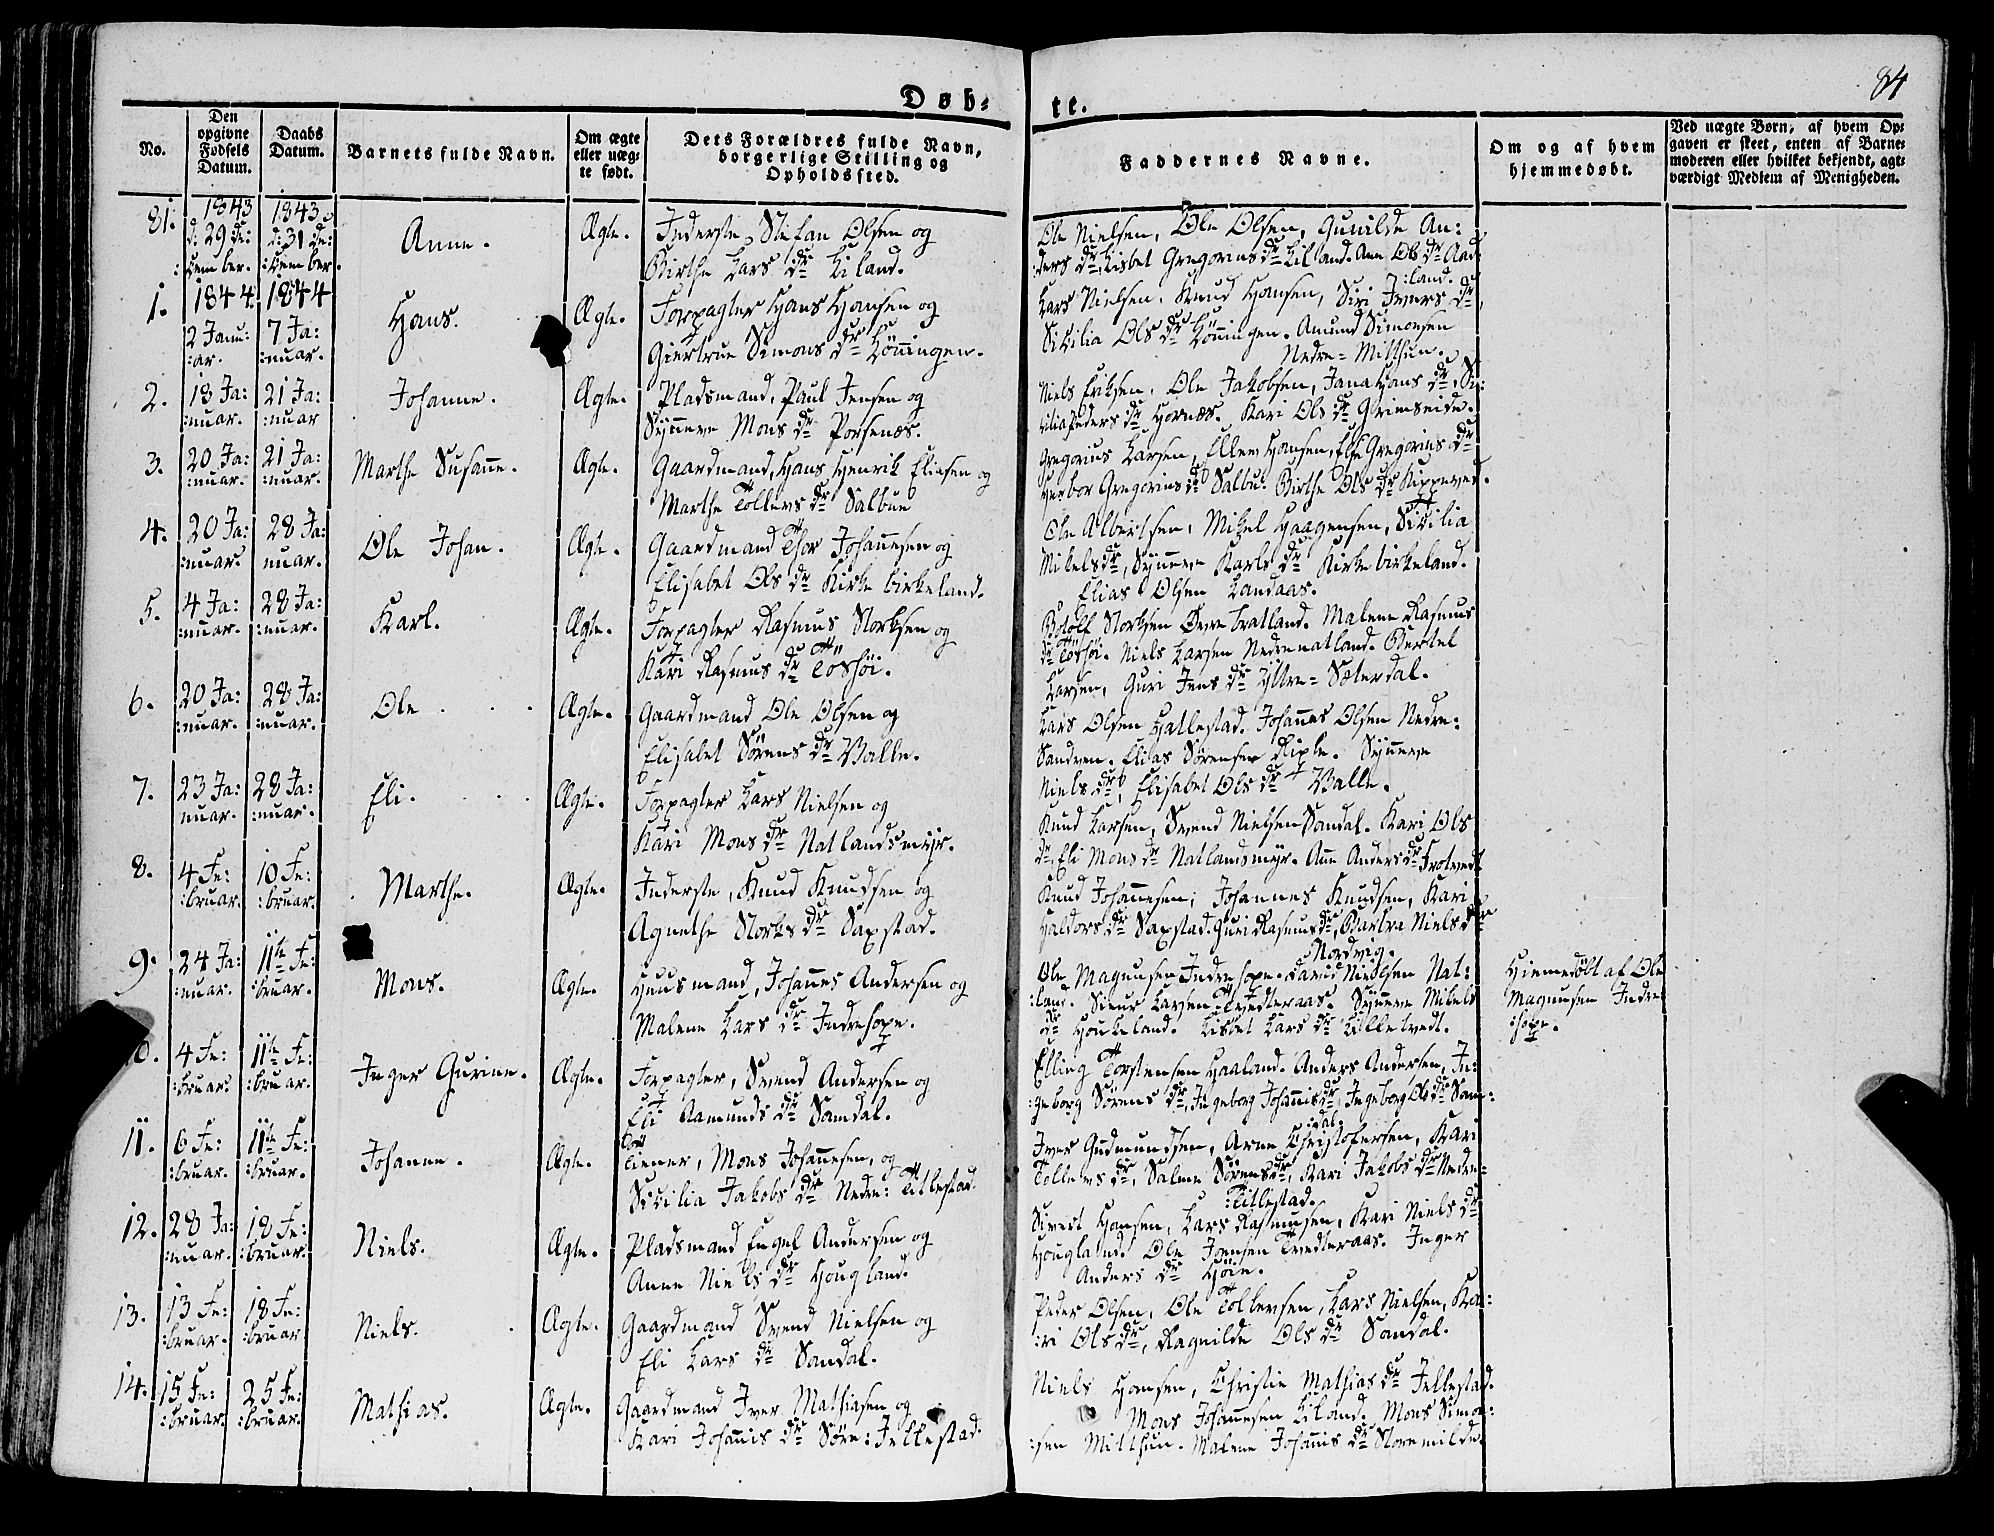 Døb-
te.
84
No.
Den
opgivne
Fødsels
Datum.
Daabs
Datum.
Barnets fulde Navn.
Om ægte
eller uæg-
te født.
Dets Forældres fulde Navn,
borgerlige Stilling og
Opholdssted.
Faddernes Navne.
Om og af hvem
hjemmedøbt.
Ved uægte Børn, af hvem Op-
gaven er skeet, enten af Barne-
moderen eller hvilket bekjendt, agt-
værdigt Medlem af Menigheden.
81.
1843
d: 29 de:
:cember.
1843
d: 31 de:
:cember.
Anne.
Ægte.
Inderste Stefan Olsen og
Birthe Lars dr Liland.
Ole Nielsen, Ole Olsen, Gunilde An:
:ders dr, Lisbet Gregorius dr Liland. Ane Ols dr Aad:
:land.
1.
1844.
2 Janu:
:ar.
1844
7 Ja:
:nuar.
Hans.
Ægte.
Forpagter Hans Hansen og
Giertrue Simons dr Hönningen.
Lars Nielsen. Knud Hansen, Siri Ivers dr,
Sicilia Ols dr Hönningen. Amund Simonsen
Nedre=Milthun.
2.
18 Ja:
:nuar.
21 Ja:
:nuar
Johanne.
Ægte.
Pladsmand, Paul Jensen og
Synneve Mons dr Porsenæs.
Niels Eriksen. Ole Jakobsen, Jana Hans dr, Si:
cilia Peders dr Hornæs. Kari Ols dr Grimseide.
3.
20 Ja:
:nuar.
21 Ja:
:nuar.
Marthe Susanne.
Ægte.
Gaardmand, Hans Henrik Eliesen og
Marthe Tollevs dr Salbue
Gregorius Larsen, Ellev Hansen, Else Gregorius dr
Herbor Gregorius dr Salbu. Birthe Ols dr Kippeved.
4.
20 Ja:
:nuar.
28 Ja:
nuar.
Ole Johan.
Ægte.
Gaardmand Thor Johannesen og
Elisabet Ols dr Kirke birkeland.
Ole Albertsen, Mikel Haagensen, Sicilia
Mikels dr, Synneve Karls dr Kirkebirkeland.
Elias Olsen Landaas.
5.
4 Ja:
:nuar.
28 Ja:
:nuar.
Karl.
Ægte.
Forpagter Rasmus Storksen og
Kari Rasmus dr Töshöi.
Botolf Storksen Övre bratland. Malene Rasmus
dr Töshöi. Niels Larsen Nedrenatland. Bertel
Larsen, Guri Jens dr Ytre=Sæterdal.
6.
20 Ja:
:nuar.
28 Ja:
:nuar.
Ole
Ægte.
Gaardmand Ole Olsen og
Elisabet Sörens dr Valle.
Lars Olsen Hallestad. Johannes Olsen Nedre:
Sandven. Elias Sörensen Riple. Synneve
Niels dr, Elisabet Ols dr Valle.
7.
23 Ja:
nuar.
28 Ja:
:nuar.
Eli.
Ægte.
Forpagter Lars Nielsen og
Kari Mons dr Natlandsmyr.
Knud Larsen, Svend Nielsen Sandal. Kari Ols
dr, Eli Mons dr Natlandsmyr. Ane Anders dr Frotvedt
8.
4 Fe:
:bruar.
10 Fe:
:bruar.
Marthe.
Ægte.
Inderste, Knud Knudsen og
Agnethe Storks dr Saxstad.
Knud Johannesen, Johannes Knudsen, Kari
Haldors dr Saxstad. Guri Rasmus dr, Barbra Niels dr
Nordvig.
9.
24 Ja:
:nuar.
11te Fe:
:bruar.
Mons.
Ægte.
Huusmand, Johannes Andersen og
Malene Lars dr Indrehope.
Ole Magnusen Indrehope. David Nielsen Nat:
:land. Sieur Larsen Tvedteraas. Synneve Mikels
dr Houkeland. Lisbet Lars dr Lilletvedt.
Hiemedöbt af Ole
Magnusen Indre:
:hope.
10.
4 Fe:
:bruar.
11te Fe:
:bruar.
Inger Gurine.
Ægte.
Forpagter, Svend Andersen og
Eli Aamunds dr Sandal.
Elling Torstensen Haaland. Anders Andersen, In:
:geborg Sörens dr, Ingeborg Johannis dr, Ingeborg Ols dr San:
:dal.
11.
6 Fe:
:bruar.
11te Fe:
:bruar.
Johanne.
Ægte.
Tiener, Mons Johannesen, og
Sicilia Jakobs dr Nedre: Titlestad.
Iver Gudmundsen, Arne Christofersen, Kari
Tollevs dr, Salme Sörens dr, Kari Jakobs dr Nedre=
:Titlestad.
12.
28 Ja:
:nuar.
18 Fe:
:bruar.
Niels.
Ægte.
Pladsmand Engel Andersen og
Anne Niels dr Hougland.
Sivert Hansen, Lars Rasmusen, Kari Niels dr
Hougland. Ole Joensen Tvedteraas. Inger
Anders dr Höie.
13.
13 Fe:
:bruar.
18 Fe:
:bruar
Niels.
Ægte.
Gaardmand Svend Nielsen og
Eli Lars dr Sandal.
Peder Olsen, Ole Tollevsen, Lars Nielsen, Ka:
:ri Ols dr, Ragnilde Ols dr Sandal.
14.
15 Fe:
:bruar.
25 Fe:
:bruar.
Mathias.
Ægte.
Gaardmand Iver Mathiasen og
Kari Johannis dr Söre: Jellestad.
Niels Hansen, Christie Mathias dr Jellestad.
Mons Johannesen Liland. Mons Simon:
:sen Milthun. Malene Johannis dr Storemilde.